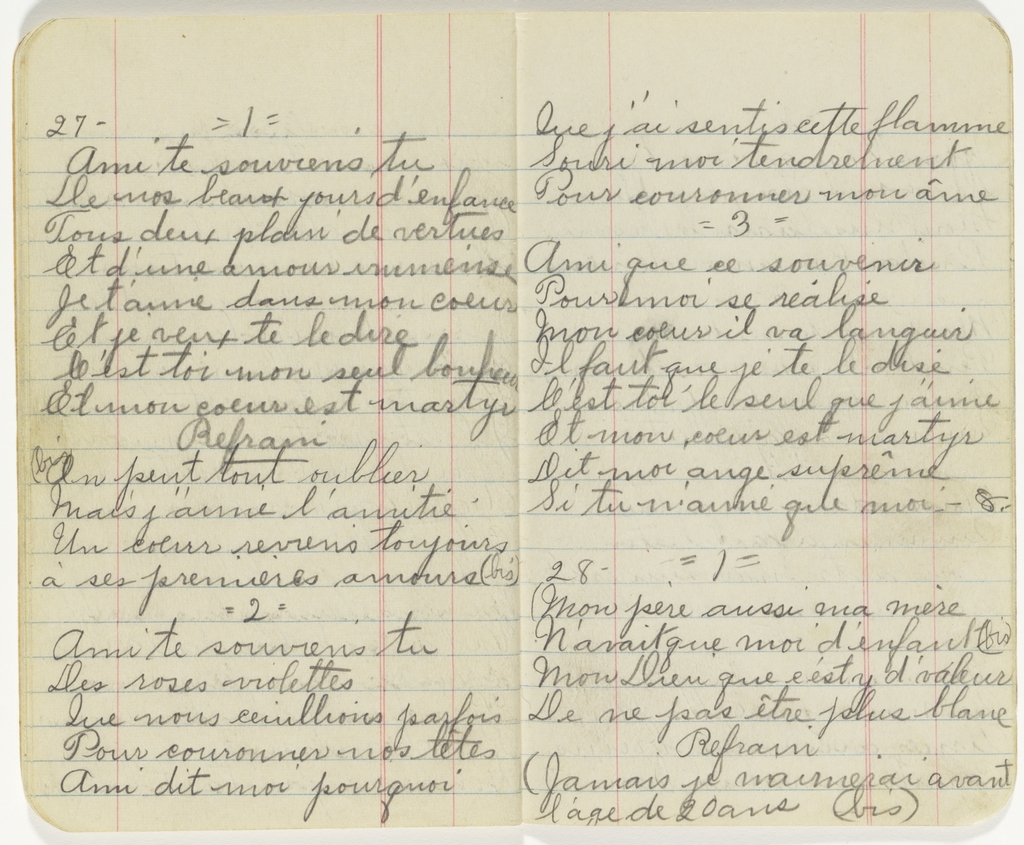 27- =1=
Ami te souviens tu
De nos beaux jours d'enfance
Tous deux plain de vertues
Et d'une amour immense
Je t'aime dans mon coeur
Et je veux te le dire
C'est toi mon seul bonheur
Et mon coeur est martyr
Refrain
(bis) On peut tout oublier
Mais j'aime l'amitié
Un coeur reviens toujours
à ses premières amours (bis)
=2=
Ami te souviens tu
Des roses violettes
Que nous ceuillions parfois
Pour couronner nos têtes
Ami dit moi pourquoi
Que j'ai sentis cette flamme
Souri moi tendrement
Pour couronner mon âme
=3=
Ami que ce souvenir
Pour moi se réalise
Mon coeur il va languir
Il faut que je te le dise
C'est toi le seul que j'aime
Et mon coeur est martyr
Dit moi ange suprême
Si tu n'aime que moi - 8.
28- =1=
(Mon père aussi ma mère
N'avait que moi d'enfant (bis)
Mon Dieu que c'ést y d'valeur
De ne pas être plus blanc
Refrain
(Jamais je n'aimerai avant
l'age de 20 ans (bis)